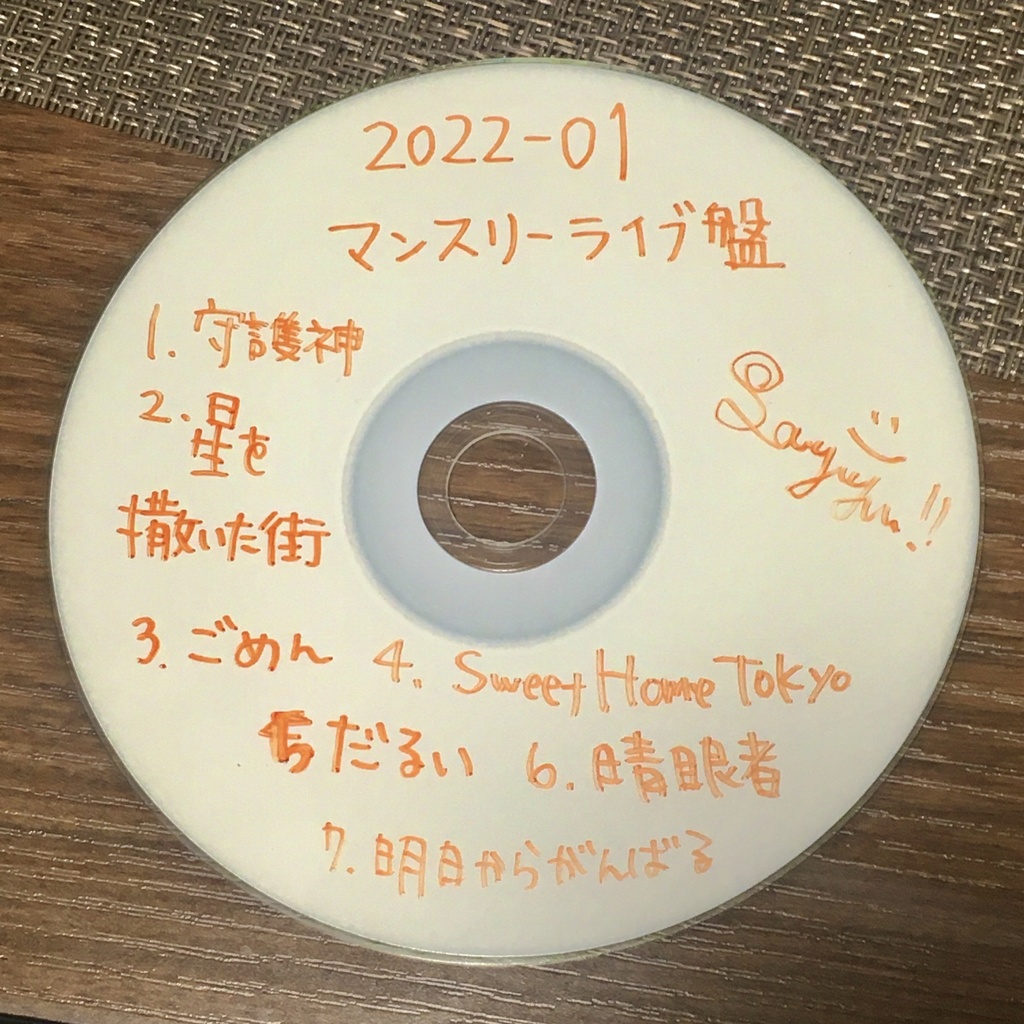 2022-01
マンスリーライブ盤
1. 守護神
2. 星を
撒いた街
3. ごめん
4. Sweet Home Tokyo
だるい
6. 晴眼者
7. 明日からがんばる